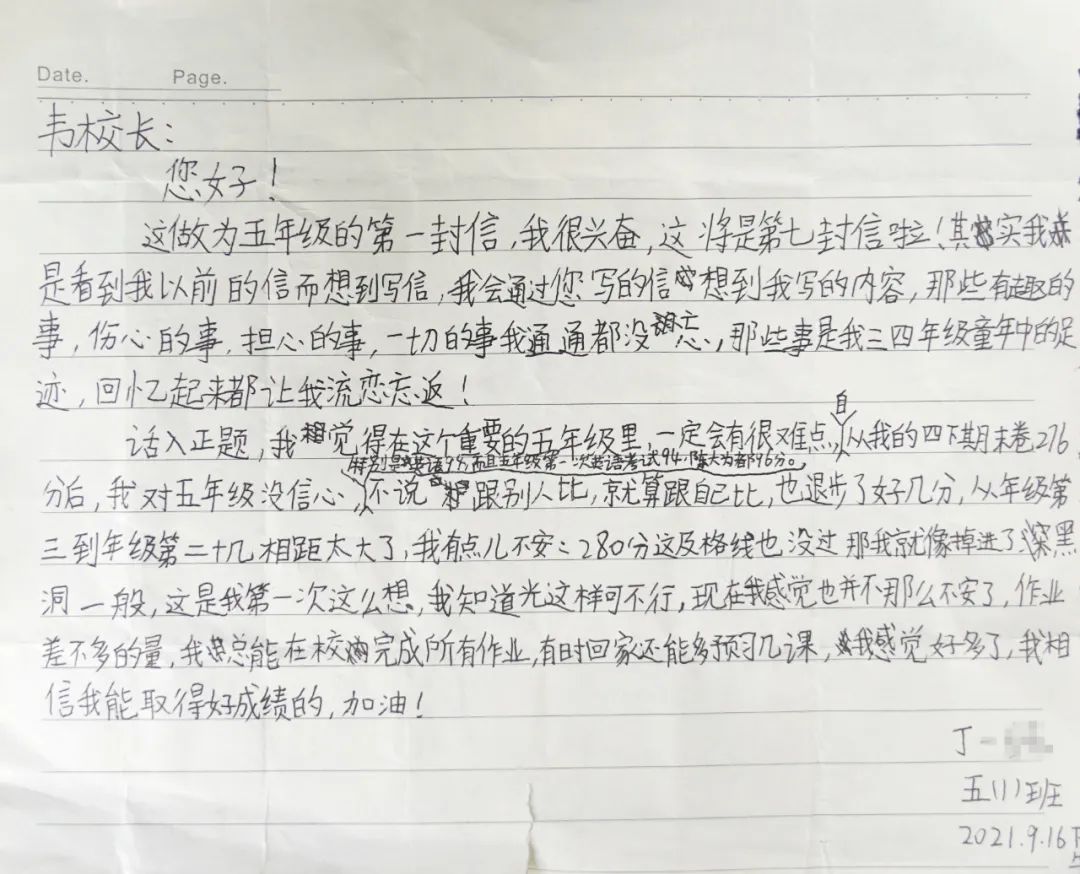 Date. Page.
韦校长：
您好！
这做为五年级的第一封信，我很兴奋，这将是第七封信啦！其实我
是看到我以前的信而想到写信，我会通过您写的信想到我写的内容，那些有趣的
事，伤心的事，担心的事，一切的事我通通都没忘，那些事是我三四年级童年中的足
迹，回忆起来都让我流恋忘返！
话入正题，我觉得在这个重要的五年级里，一定会有很难点，自从我的四下期末卷276
特别是英语94，而且五年级第一次英语考试94，陈大为都96分。
分后，我对五年级没信心，不说跟别人比，就算跟自己比，也退步了好几分，从年级第
三到年级第二十几相距太大了，我有点儿不安：280分这及格线也没过那我就像掉进了深黑
洞一般，这是我第一次这么想，我知道光这样可不行，现在我感觉也并不那么不安了，作业
差不多的量，我总能在校内完成所有作业，有时回家还能多预习几课，我感觉好多了，我相
信我能取得好成绩的，加油！
丁一
五(1)班
2021.9.16